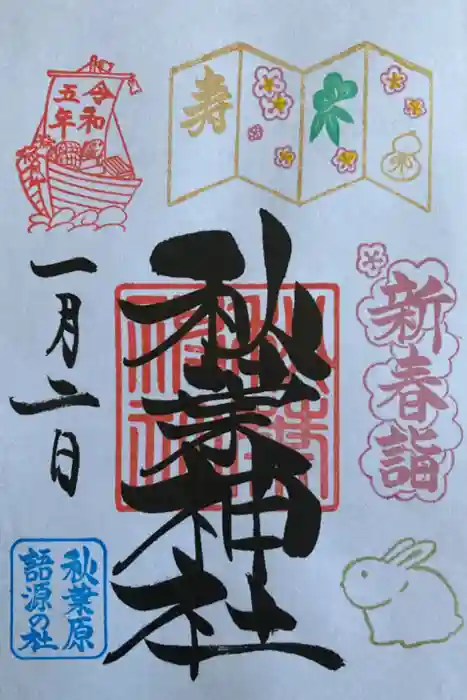 令和
五年
寿
新春詣
秋葉神社
一月二日
秋葉原
語源の社